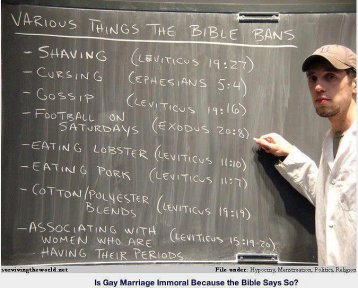 VARIOUS THINGS THE BIBLE BANS
- SHAVING (LEVITICUS 19:27)
- CURSING (EPHESIANS 5:4)
- GOSSIP (LEVITICUS 19:16)
- FOOTBALL ON
SATURDAYS (EXODUS 20:8)
- EATING LOBSTER (LEVITICUS 11:10)
- EATING PORK (LEVITICUS 11:7)
- COTTON/POLYESTER
BLENDS (LEVITICUS 19:19)
- ASSOCIATING WITH
WOMEN WHO ARE (LEVITICUS 15:19-20)
HAVING THEIR PERIODS
survivingtheworld.net File under: Hypocrisy, Menstruation, Politics, Religion
Is Gay Marriage Immoral Because the Bible Says So?